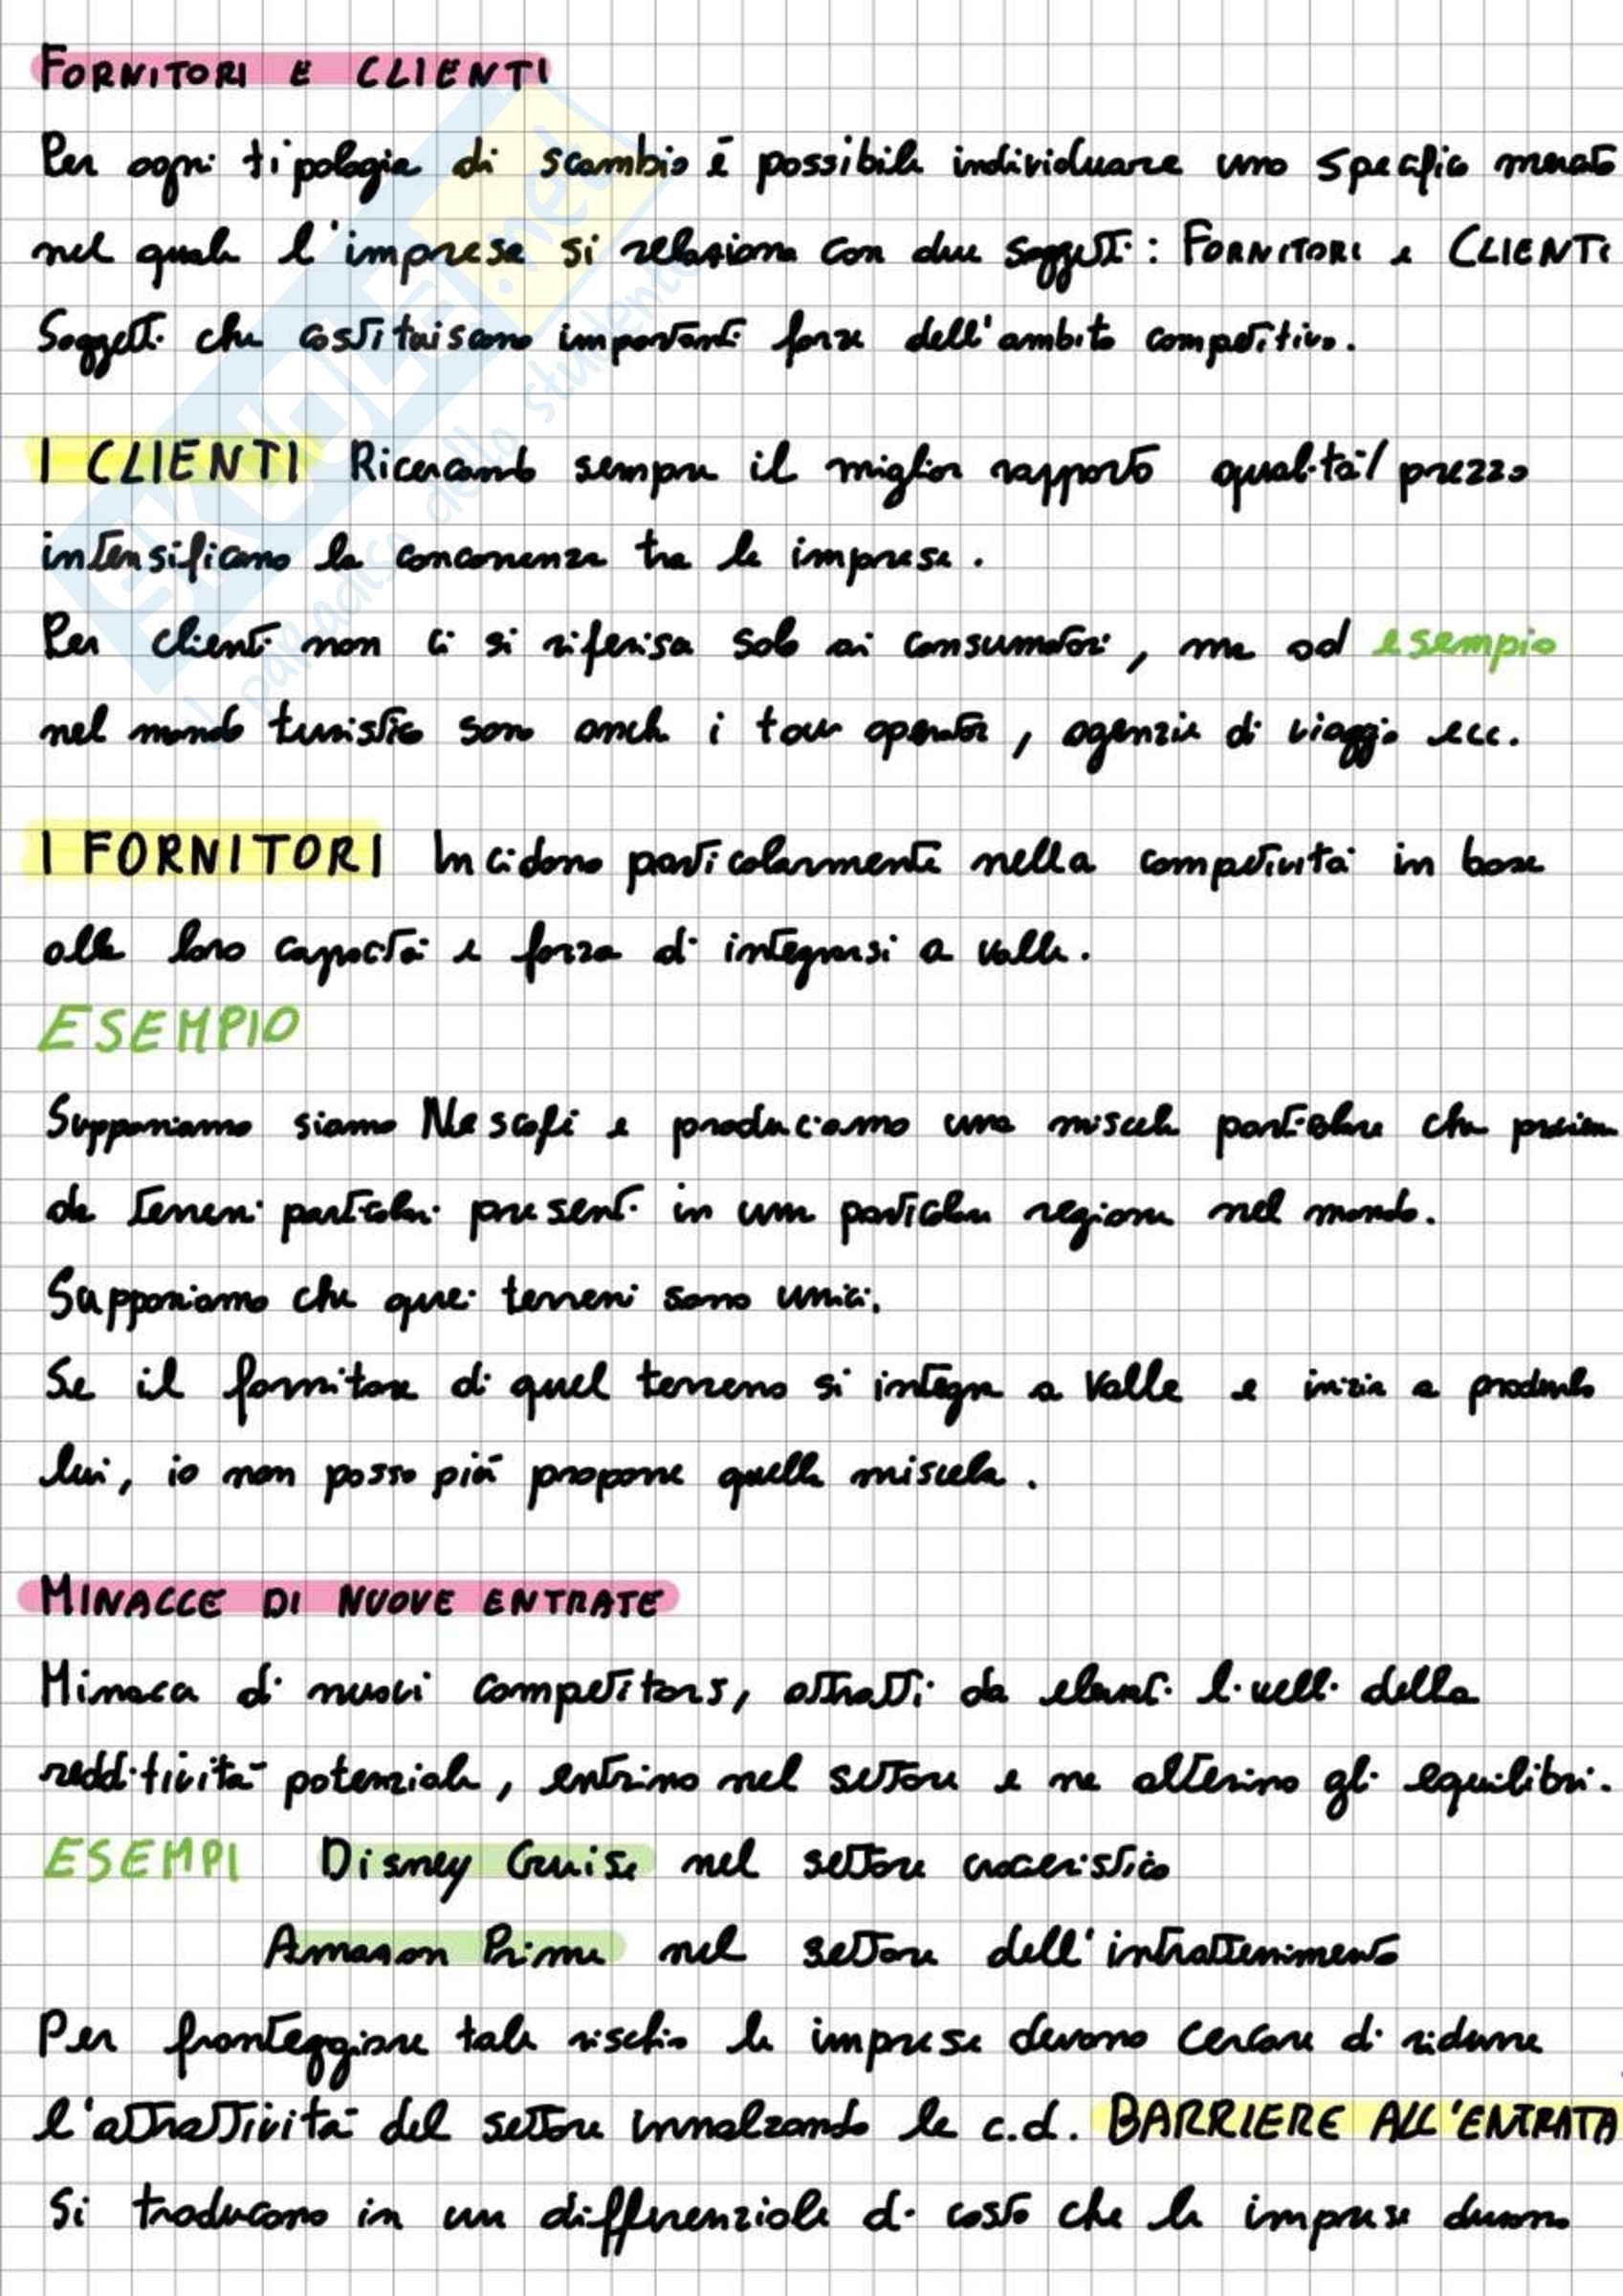 FORNITORI E CLIENTI
Per ogni tipologia di scambio è possibile individuare uno specifico mercato
nel quale l'impresa si relaziona con due soggetti: FORNITORI e CLIENTI
Soggetti che costituiscono importanti forze dell'ambito competitivo.
I CLIENTI Ricercando sempre il miglior rapporto qualità/prezzo
intensificano la concorrenza tra le imprese.
Per clienti non ci si riferisce solo ai consumatori, ma ad esempio
nel mondo turistico sono anche i tour operator, agenzie di viaggio ecc.
I FORNITORI Incidono particolarmente nella competività in base
alle loro capacità e forza di integrarsi a valle.
ESEMPIO
Supponiamo siamo Nescafè e produciamo una miscela particolare che proviene
da terreni particolari presenti in una particolare regione nel mondo.
Supponiamo che quei terreni sono unici.
Se il fornitore di quel terreno si integra a valle e inizia a produrlo
lui, io non posso più proporre quella miscela.
MINACCE DI NUOVE ENTRATE
Minacca di nuovi competitors, attratti da elevati livelli della
redditività potenziale, entrino nel settore e ne alterino gli equilibri.
ESEMPI Disney Cruise nel settore croceristico
Amazon Prime nel settore dell'intrattenimento
Per fronteggiare tale rischio le imprese devono cercare di ridurre
l'attrattività del settore innalzando le c.d. BARRIERE ALL'ENTRATA
Si traducono in un differenziale di costo che le imprese devono
SKUOLA.net
il paradiso dello studente